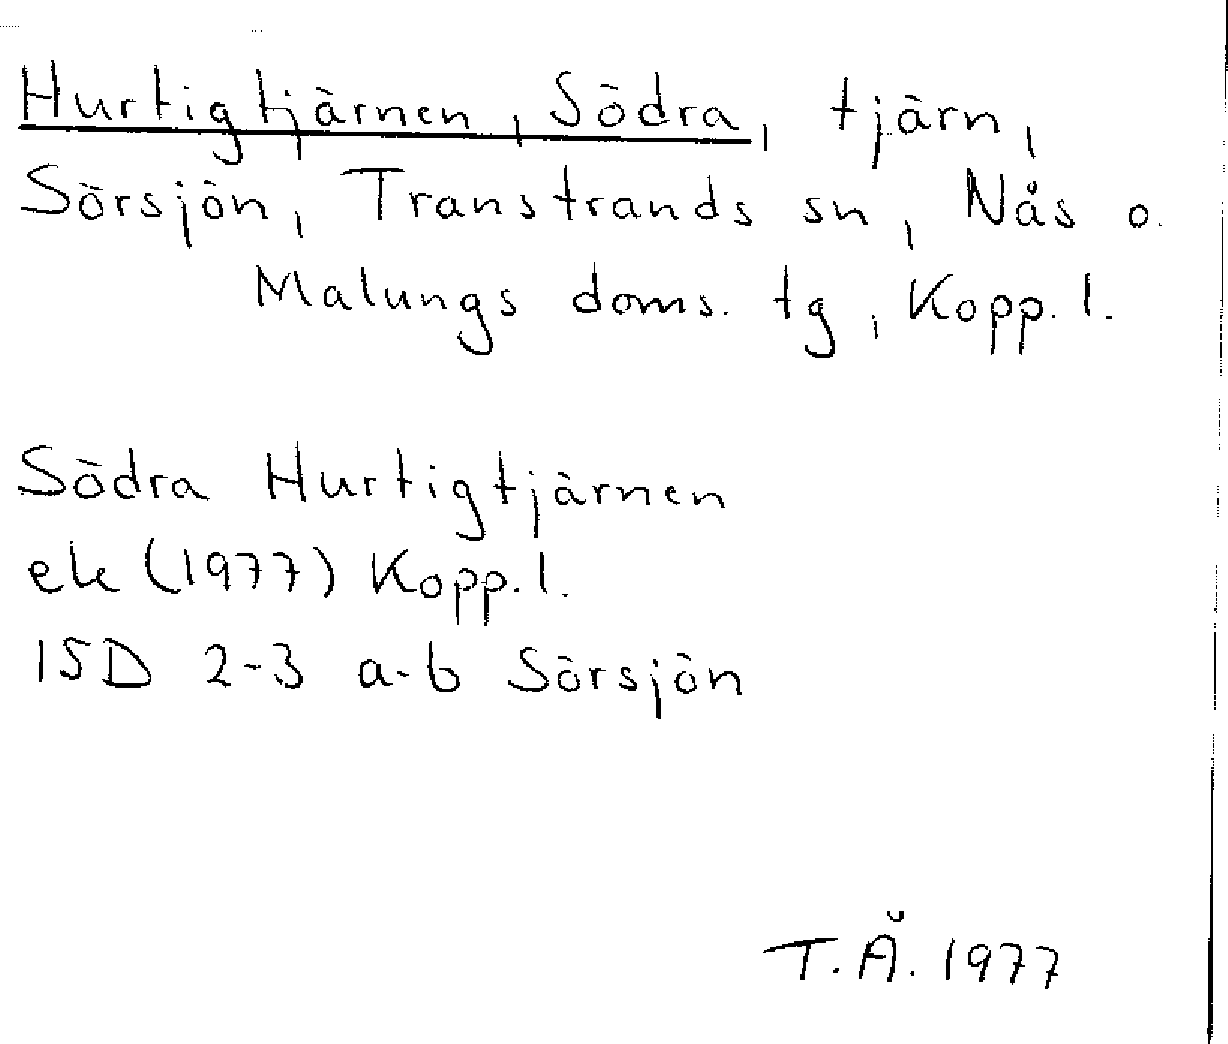 Hurtigtjärnen, Södra, tjärn,
Sörsjön, Transtrands sn, Nås o.
Malungs doms. tg, Kopp. l.
Södra Hurtigtjärnen
ek (1977) Kopp. l.
15D 2-3 a-b Sörsjön
T.Å. 1977